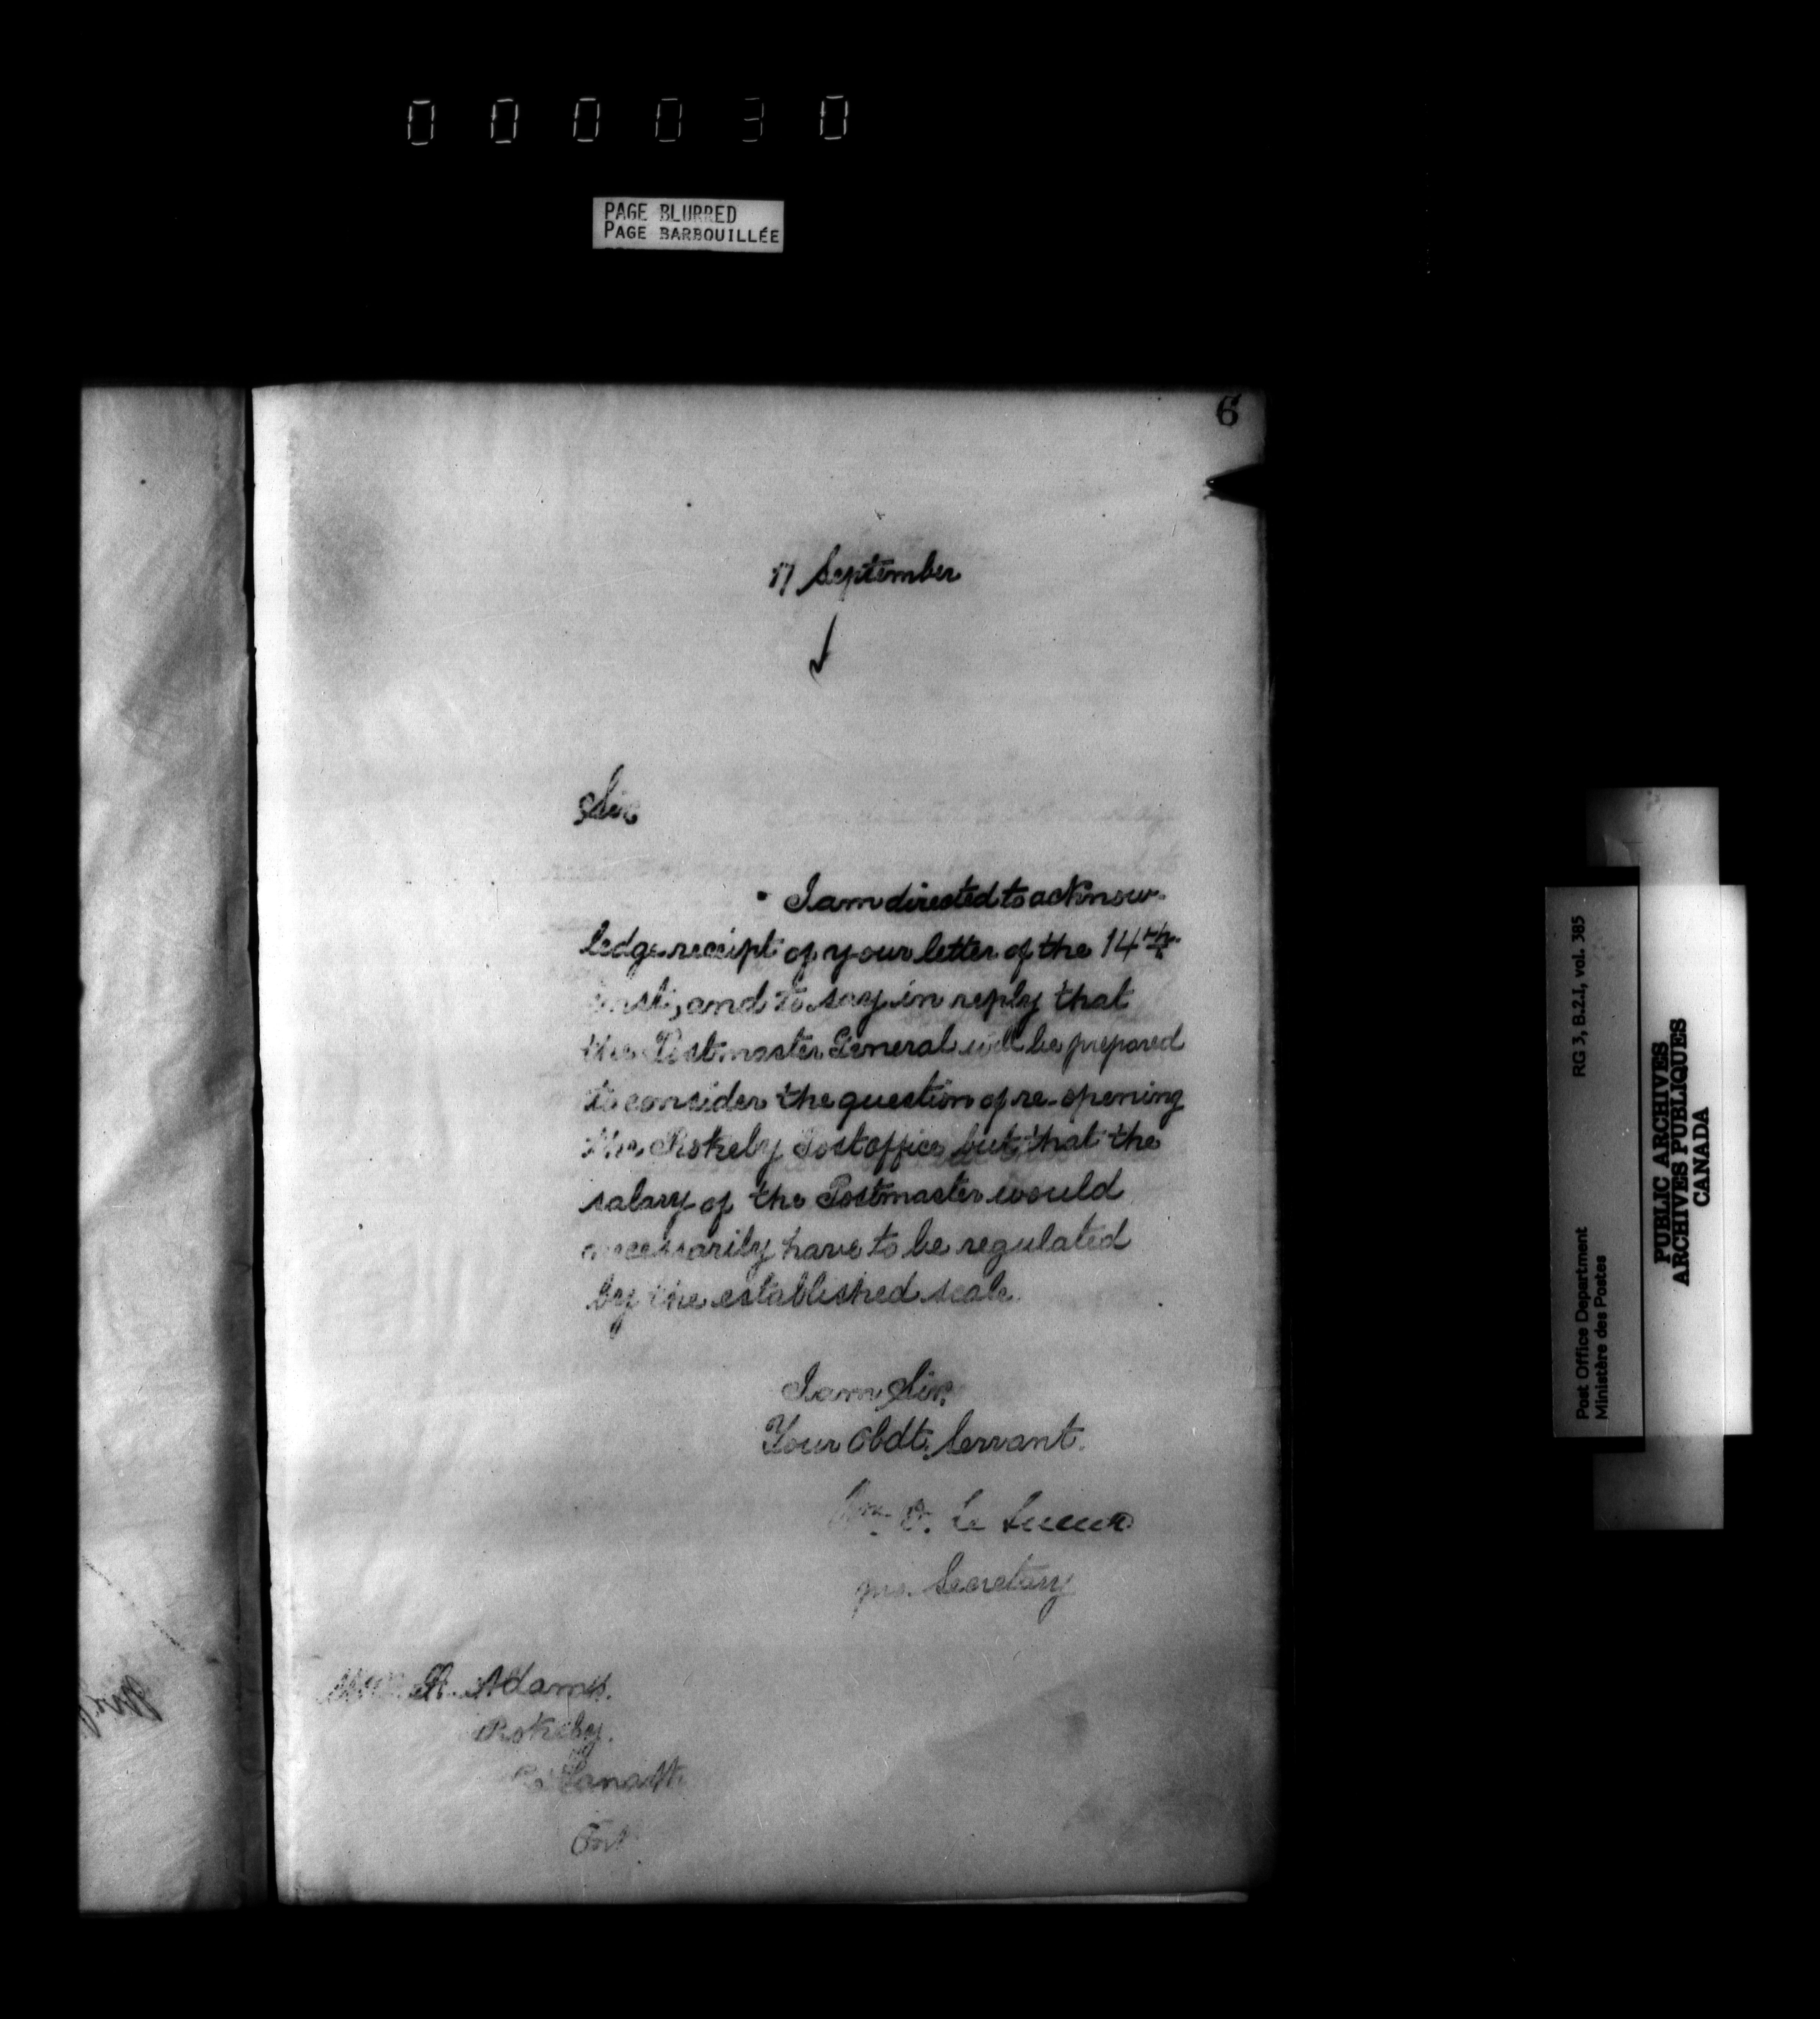 0 0 0 0 3 0
PAGE BLURRED
PAGE BARBOUILLÉE
6
17 September
Sir
I am directed to acknow-
ledge receipt of your letter of the 14th
inst, and to say in reply that
the Postmaster General will be prepared
to consider the question of re-opening
the Rokeby Postoffice but that the
salary of the Postmaster would
necessarily have to be regulated
by the established scale.
I am, Sir,
Your Obdt. Servant.
Wm. D. Le Sueur
pro. Secretary
A. Adams.
Rokeby.
Co Lanark
Ont
RG 3, B.2.I, vol. 385
Post Office Department
Ministère des Postes
PUBLIC ARCHIVES
ARCHIVES PUBLIQUES
CANADA